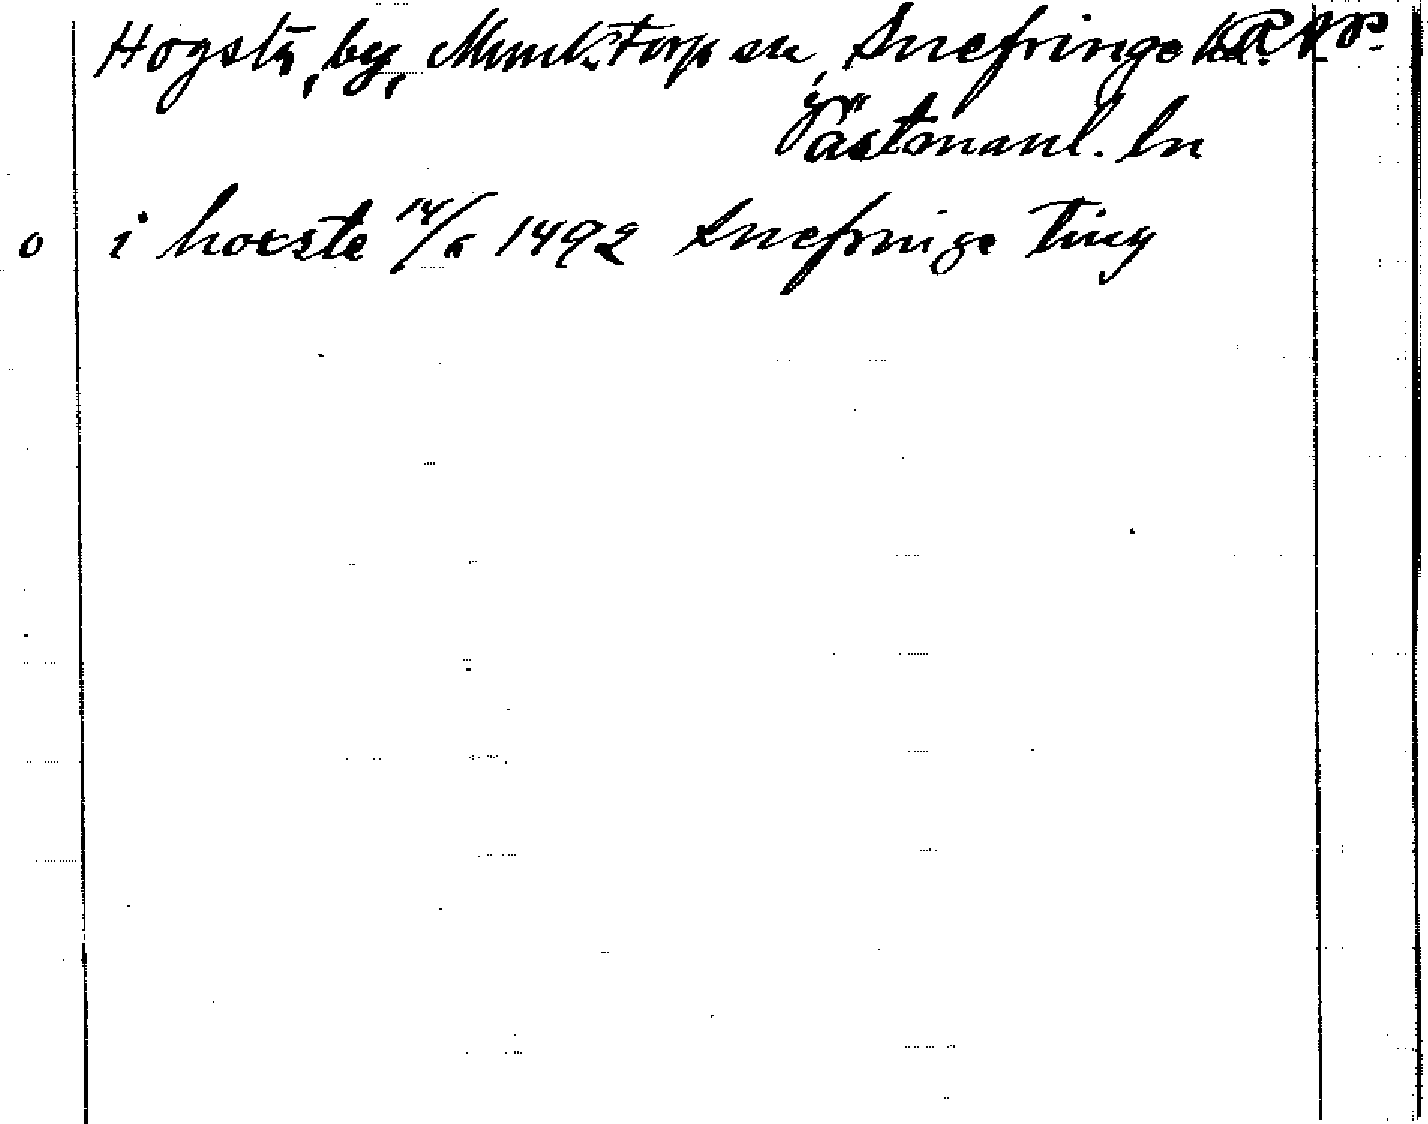 Hogsta, by, Munktorps sn, Snefringe hd.
Västmanl. ln
o i hoxste 14/5 1492 Snefringe Ting